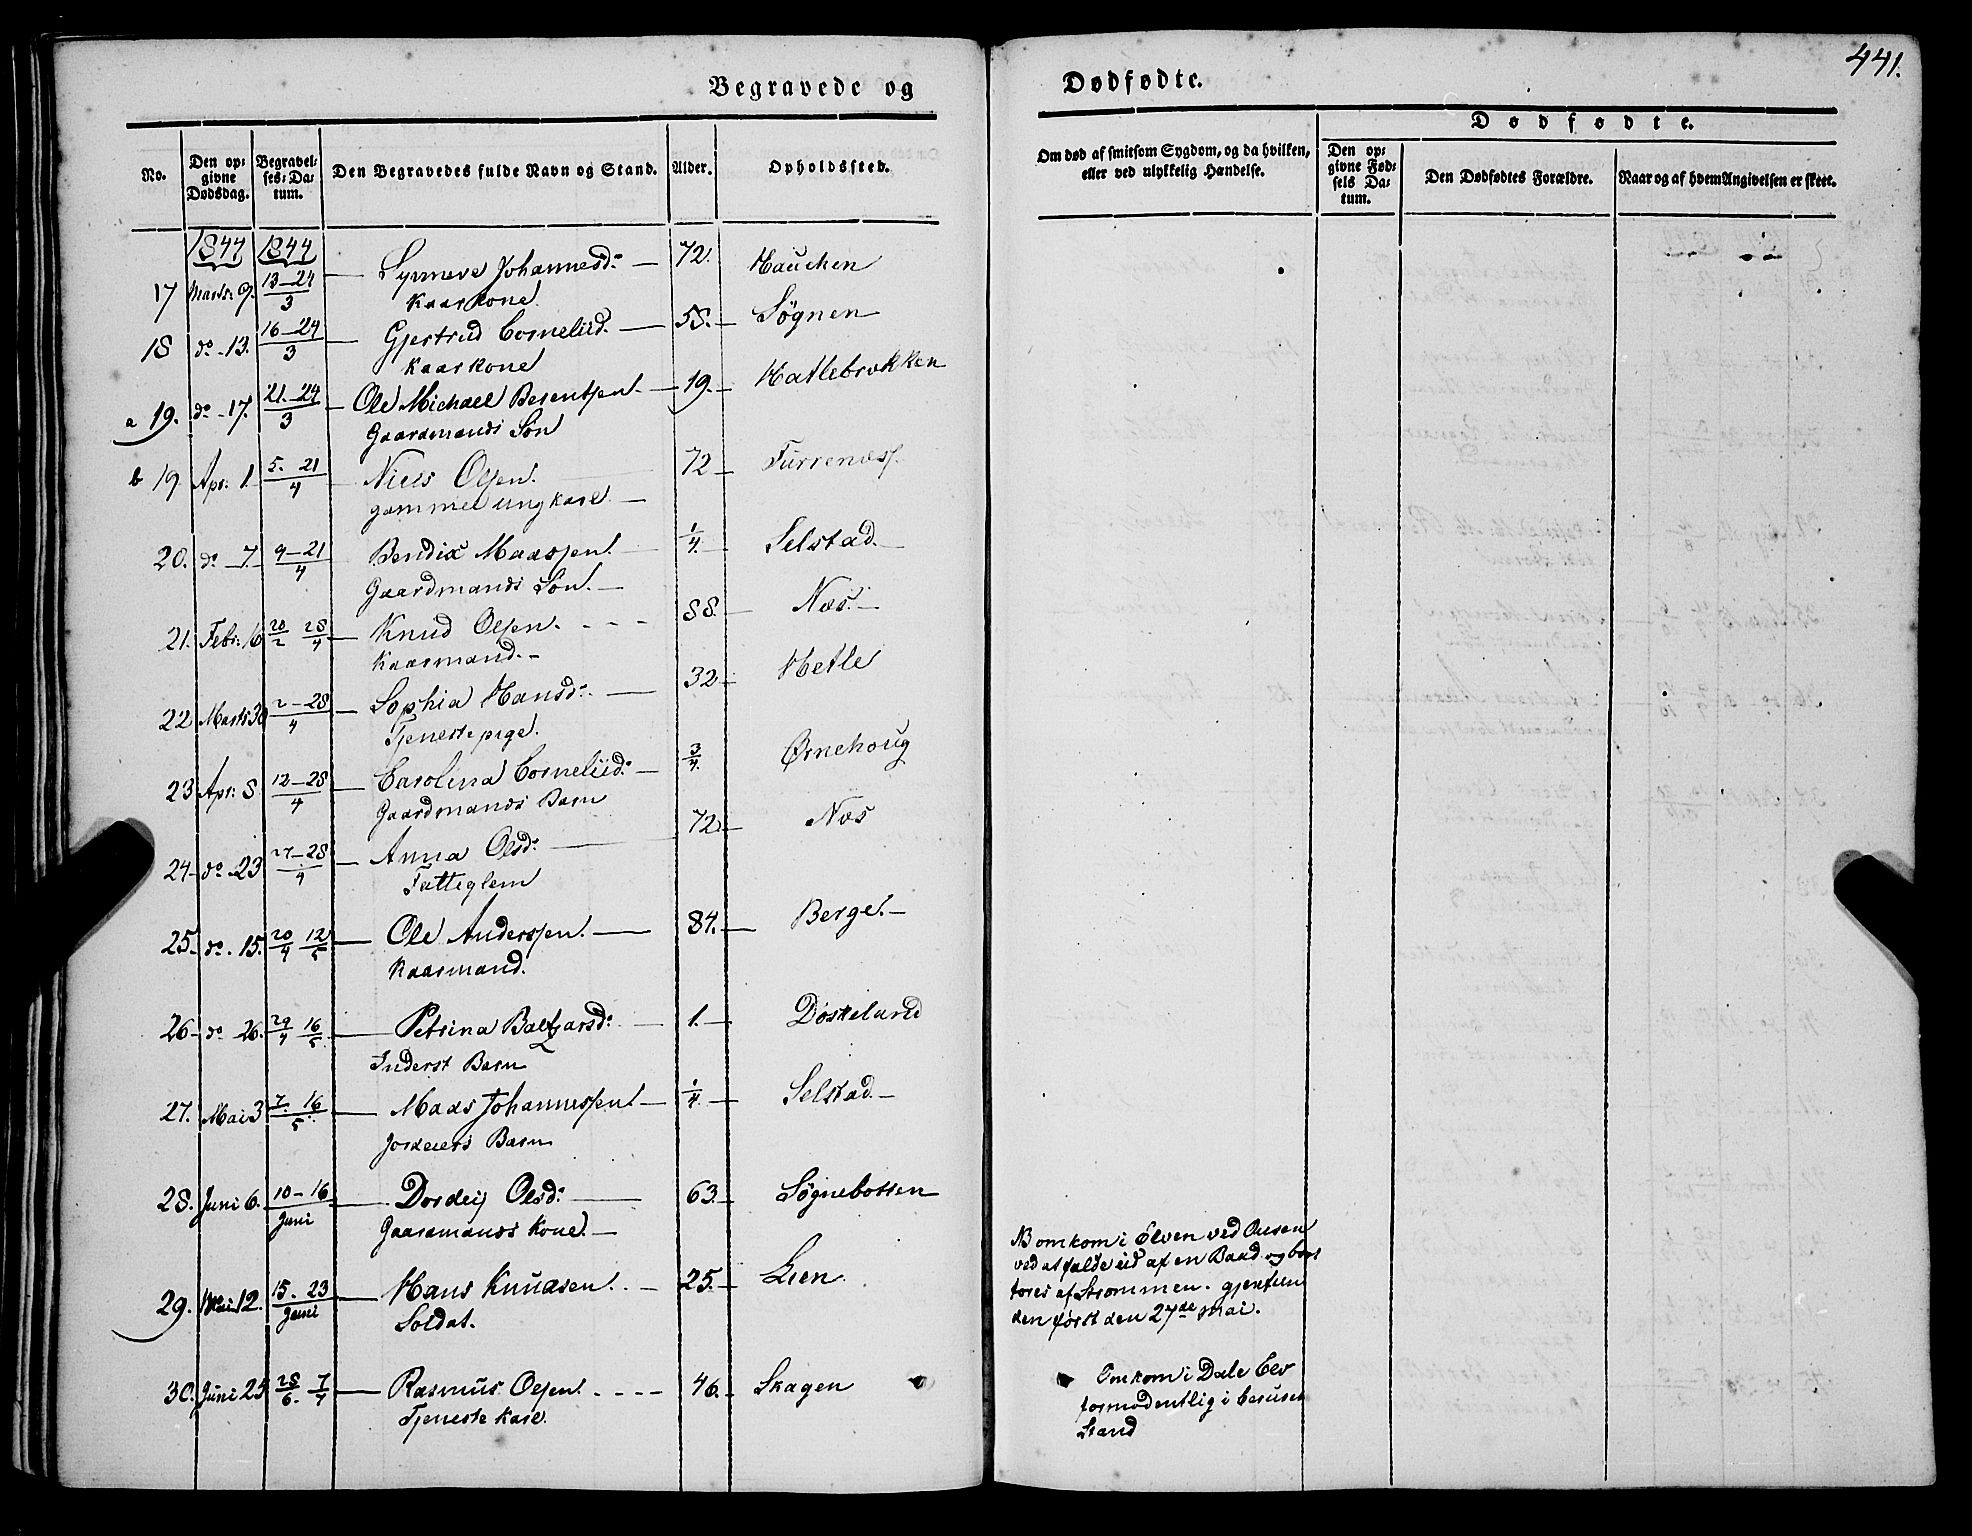 441.
Begravede og Dødfødte.
No. Den opgivne Dødsdag. Begravelses-Datum. Den Begravedes fulde Navn og Stand. Alder. Opholdssted.
Om død af smitsom Sygdom, og da hvilken, eller ved ulykkelig Hændelse.
Dødfødte.
Den opgivne Fødsels Datum. Den Dødfødtes Forældre. Naar og af hvem Angivelsen er skeet.
1844 1844
17 Marts 9. 13-24/3 Synneve Johannesd: 72. Hauchen
Kaarkone
18 do - 13. 16-24/3 Gjertrud Corneliid. 58. Søgnen
Kaarkone
a 19. do - 17. 21-24/3 Ole Michael Berentsen 19. Hatlebrækken
Gaardmands Søn
b 19 Apr: 1. 5. 21/4 Niels Olsen. 72 Furrenæss.
gammel ungkarl
20. do 7. 9-21/4 Bendix Madssen 1/4. Selstad.
Gaardmands Søn.
21. Febr: 16 20/2 28/4 Knud Olsen. 88. Næs.
Kaarmand.
22 Marts 30 2-28/4 Sophia Hansd: 32 Hetle
Tjenestepige.
23 Apr: 8. 12-28/4 Carolina Corneliid: 3/4. Ørnehoug
Gaardmands Barn
24 do 23 27-28/4 Anna Olsd: 72. Næs
Fatteglem
25. do. 15. 20/4 12/5 Ole Anderssen. 84. Berge.
Kaarmand.
26 do 26. 29/4 16/5 Petrina Baltzarsd: 1. Døskeland
Inderst Barn
27. Mai 3 7. 16/5. Mads Johannessen 1/4. Selstad.
Jordeiers Barn
28. Juni 6. 10-16/Juni Dordeij Olsd: 63. Søgnebotten
Gaardmands Kone.
29. Mai 12. 15. 23/Juni Hans Knudsen. 25. Lien.
Soldat.
NB omkom i Elven ved Ousen
ved at falde ud af en Baad og bort
føres af Strømmen. gjenfun
den først den 27de mai.
30. Juni 25 28/6. 7/7 Rasmus Olsen. 46. Skagen
Tjeneste Karl.
Omkom i Dale Elv
formodentlig i beruset
Stand